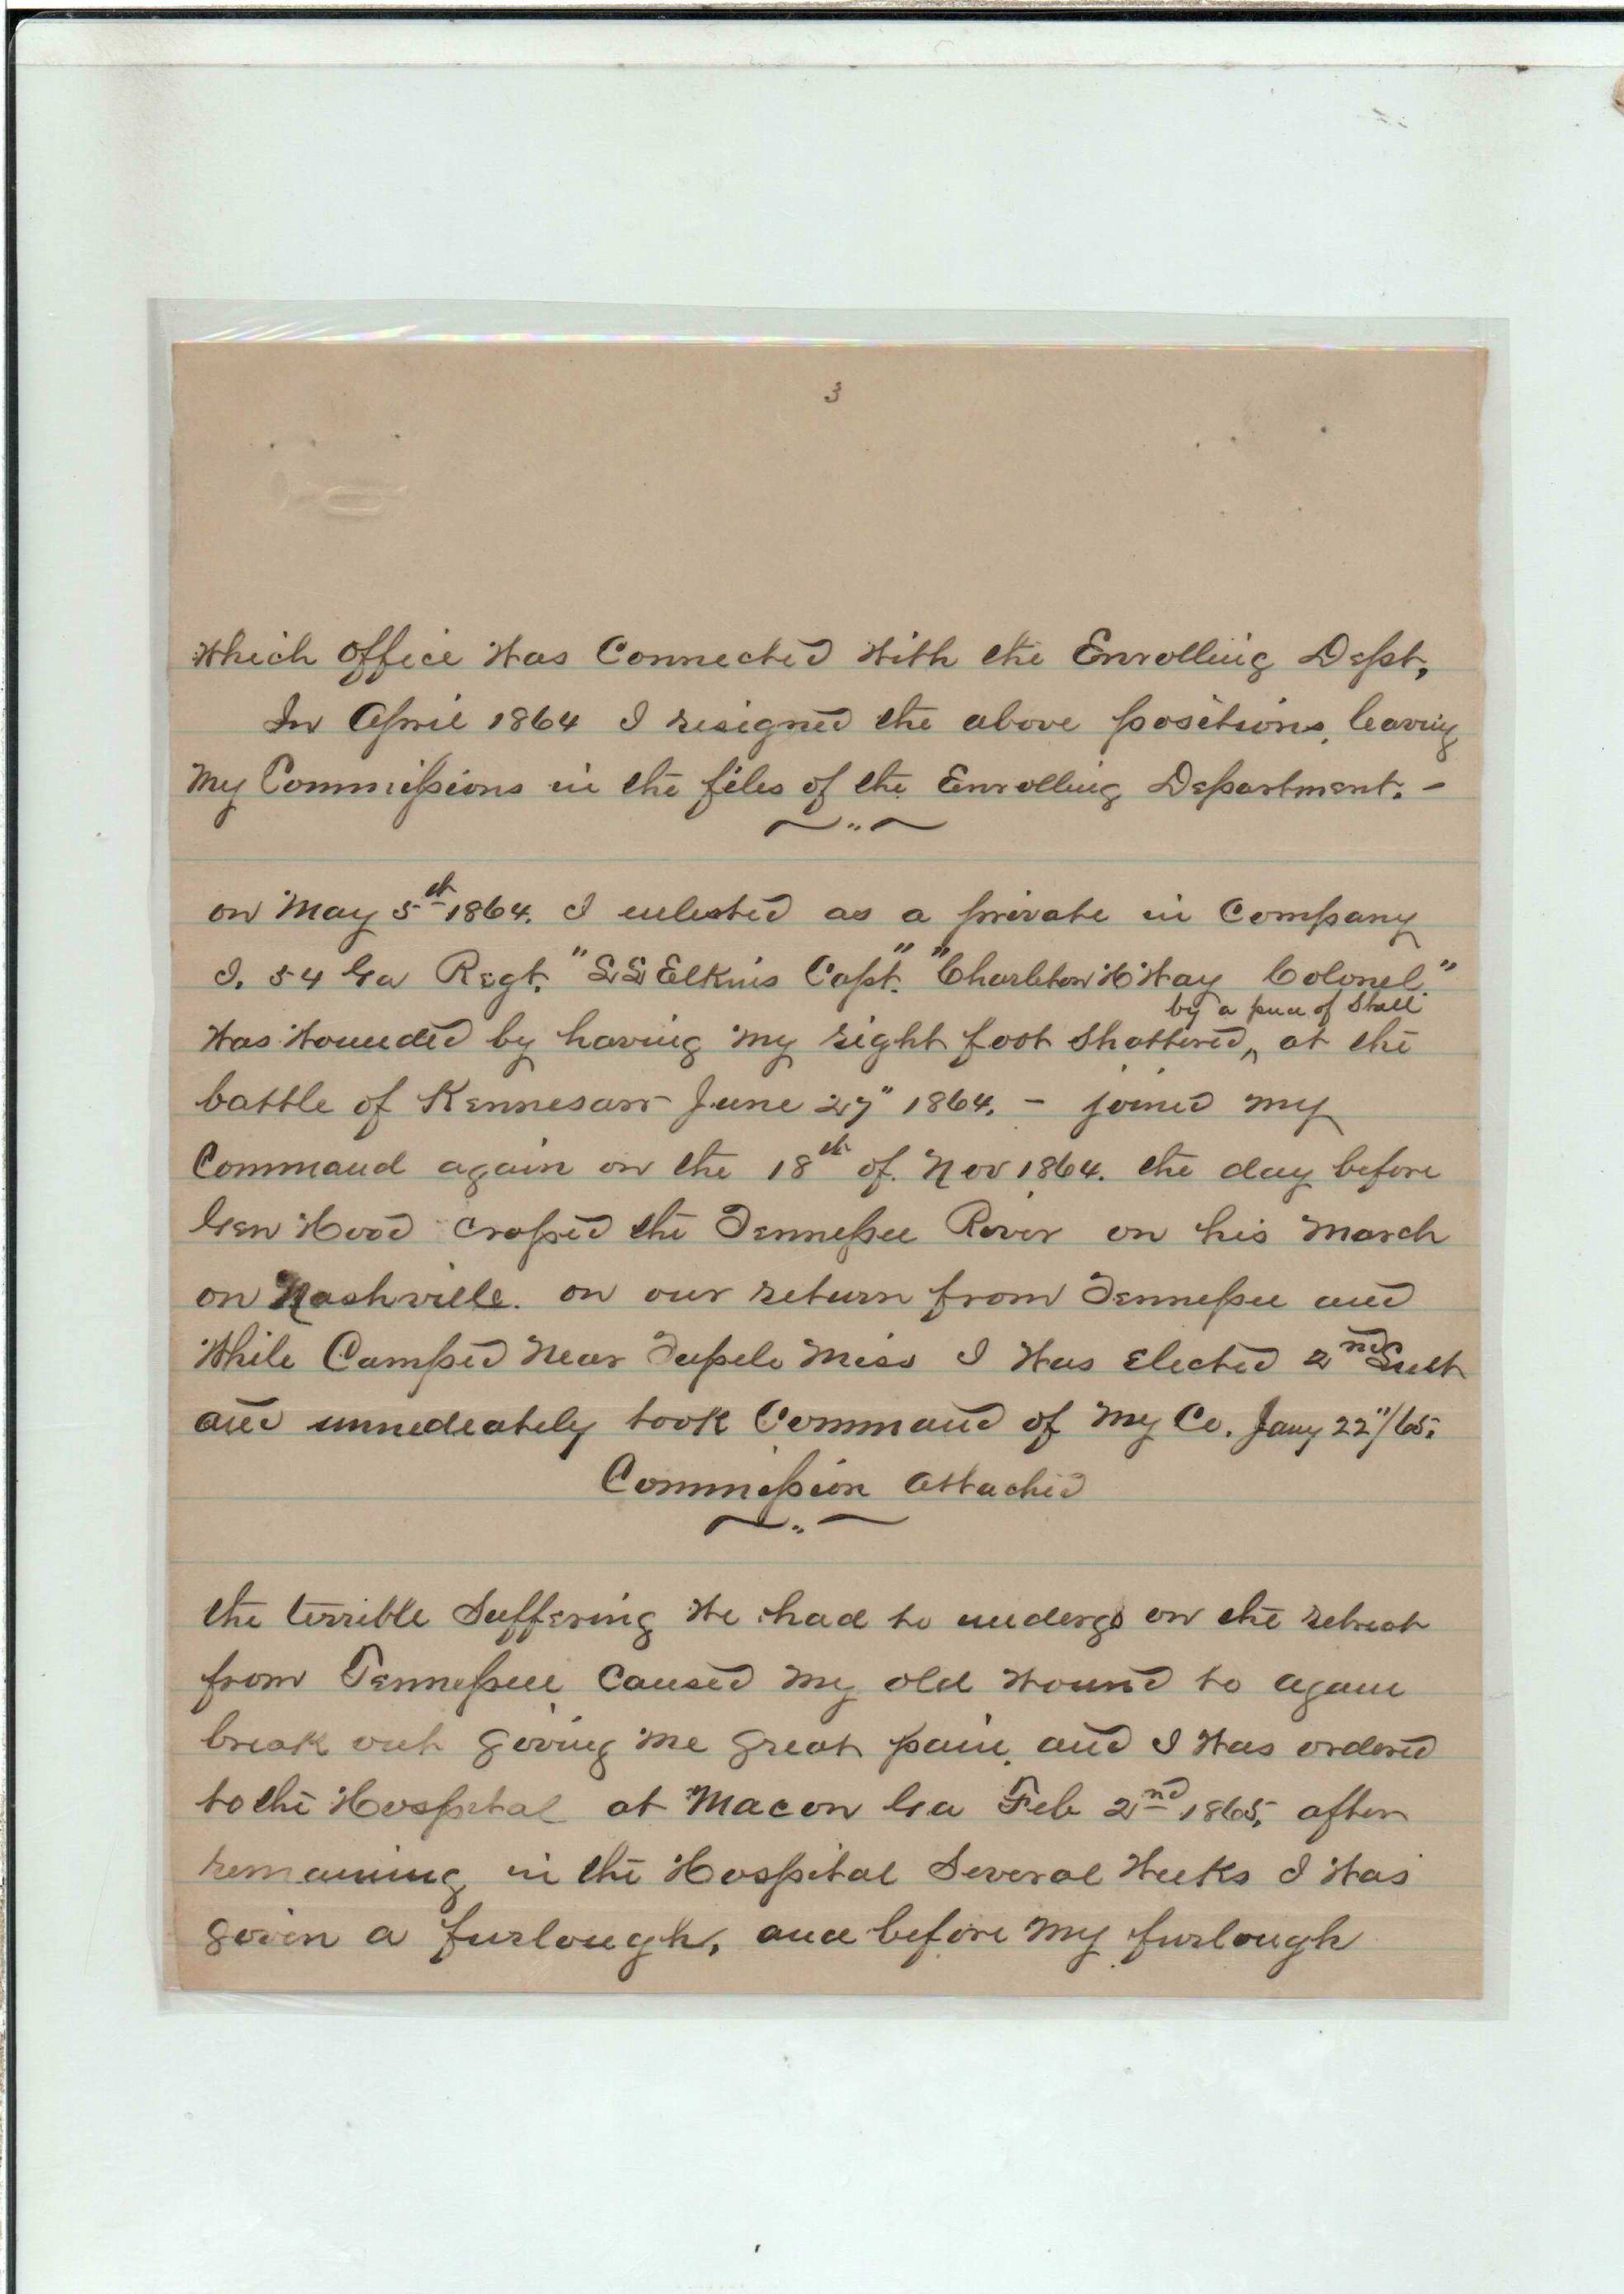 3
which office was Connected with the Enrolling Dept,
In April 1864 I resigned the above positions, leaving
My Commissions in the files of the Enrolling Department. -
on May 5th 1864. I enlisted as a private in Company
I. 54 Ga Regt. "S S Elkins Capt". "Charlton H Way Colonel"
by a piece of Shell
was wounded by having my right foot Shattered, at the
battle of Kennesaw June 27" 1864. - joined my
Command again on the 18th of Nov 1864. the day before
Gen Hood crossed the Tennessee River on his march
on Nashville. on our return from Tennessee and
while Camped Near Tupelo Miss I was Elected 2nd Lieut
and immediately took Command of My Co. Jany 22"/65.
Commission attached
the terrible Suffering we had to undergo on the retreat
from Tennessee Caused my old wound to again
break out giving me great pain, and I was ordered
to the Hospital at Macon Ga Feb 2nd 1865, after
remaining in the Hospital Several weeks I was
given a furlough, and before my furlough